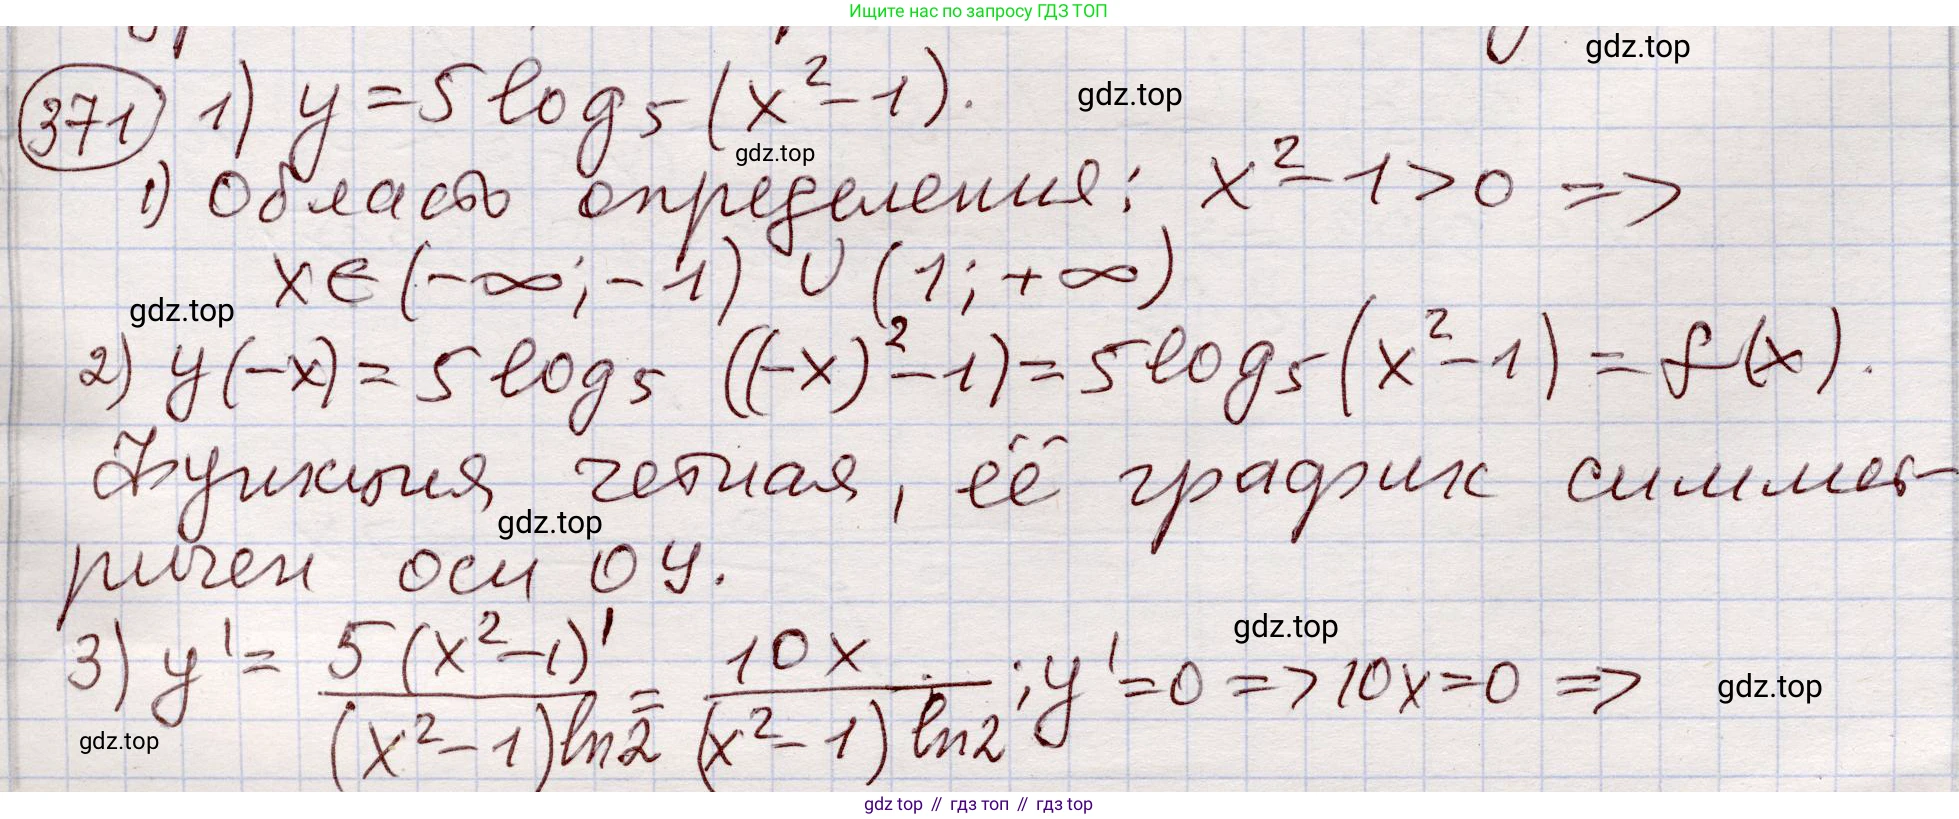 Ищите нас по запросу ГДЗ ТОП
gdz.top
371 1) y = 5 log₅ (x² - 1).
gdz.top
gdz.top
1) Область определения: x² - 1 > 0 =>
x ∈ (-∞; -1) ∪ (1; +∞)
gdz.top
2) y(-x) = 5 log₅ ((-x)² - 1) = 5 log₅ (x² - 1) = f(x).
Функция четная, её график симмет-
gdz.top
ричен оси OY.
gdz.top
3) y' = 5(x² - 1)' / (x² - 1) ln2 = 10x / (x² - 1) ln2 ; y' = 0 => 10x = 0 =>
gdz.top
gdz.top
gdz top // гдз топ // gdz top